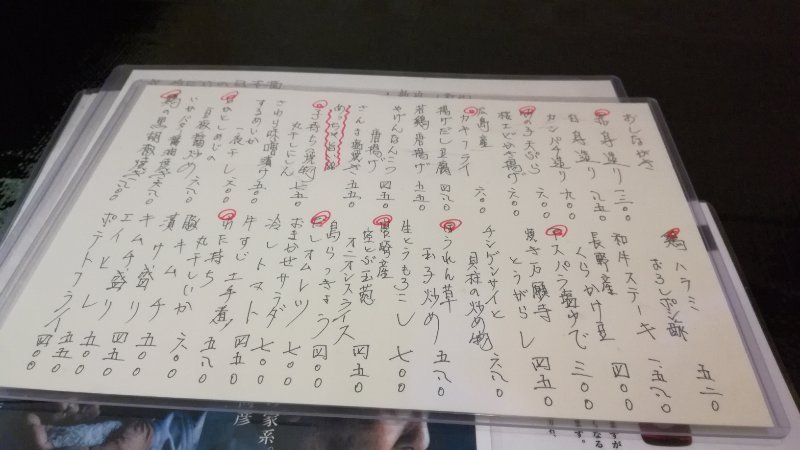 おしながき
造り 二三〇〇
白身造り 八五〇
カンパチ造り 九〇〇
の子天ぷら 六〇〇
桜エビかき揚げ 六〇〇
広島産
カキフライ 六〇〇
揚げだし豆腐 四八〇
若鶏唐揚げ 五五〇
やげんなんこつ
唐揚げ 四五〇
さんま塩焼き 五五〇
めっちゃ旨い
子持ち
丸干しにしん 七五〇
さわら味噌漬け 五〇〇
するめいか
一夜干し 六〇〇
もやしとしめじの
豆板醤炒め 六八〇
いかバター醤油焼き 六八〇
鶏の黒胡椒焼き 六八〇
鶏ハラミ
おろしポン酢 五二〇
和牛ステーキ 一、五八〇
長野産
くらかけ豆 四〇〇
アスパラ塩ゆで 三〇〇
焼き万願寺
とうがらし 四五〇
チンゲンサイと
貝柱の炒め物 六八〇
ほうれん草
玉子炒め 五八〇
生とうもろこし 七〇〇
長崎産
空とぶ玉葱
オニオンスライス 四五〇
島らっきょう 四〇〇
だしオムレツ 七〇〇
おまかせサラダ 七〇〇
冷しトマト 四五〇
牛すじ土手煮 五八〇
丸干しいか 六〇〇
豚キムチ 五五〇
漬け盛り 四五〇
キムチ盛り 四五〇
エイヒレ 五五〇
ポテトフライ 四〇〇
家系。